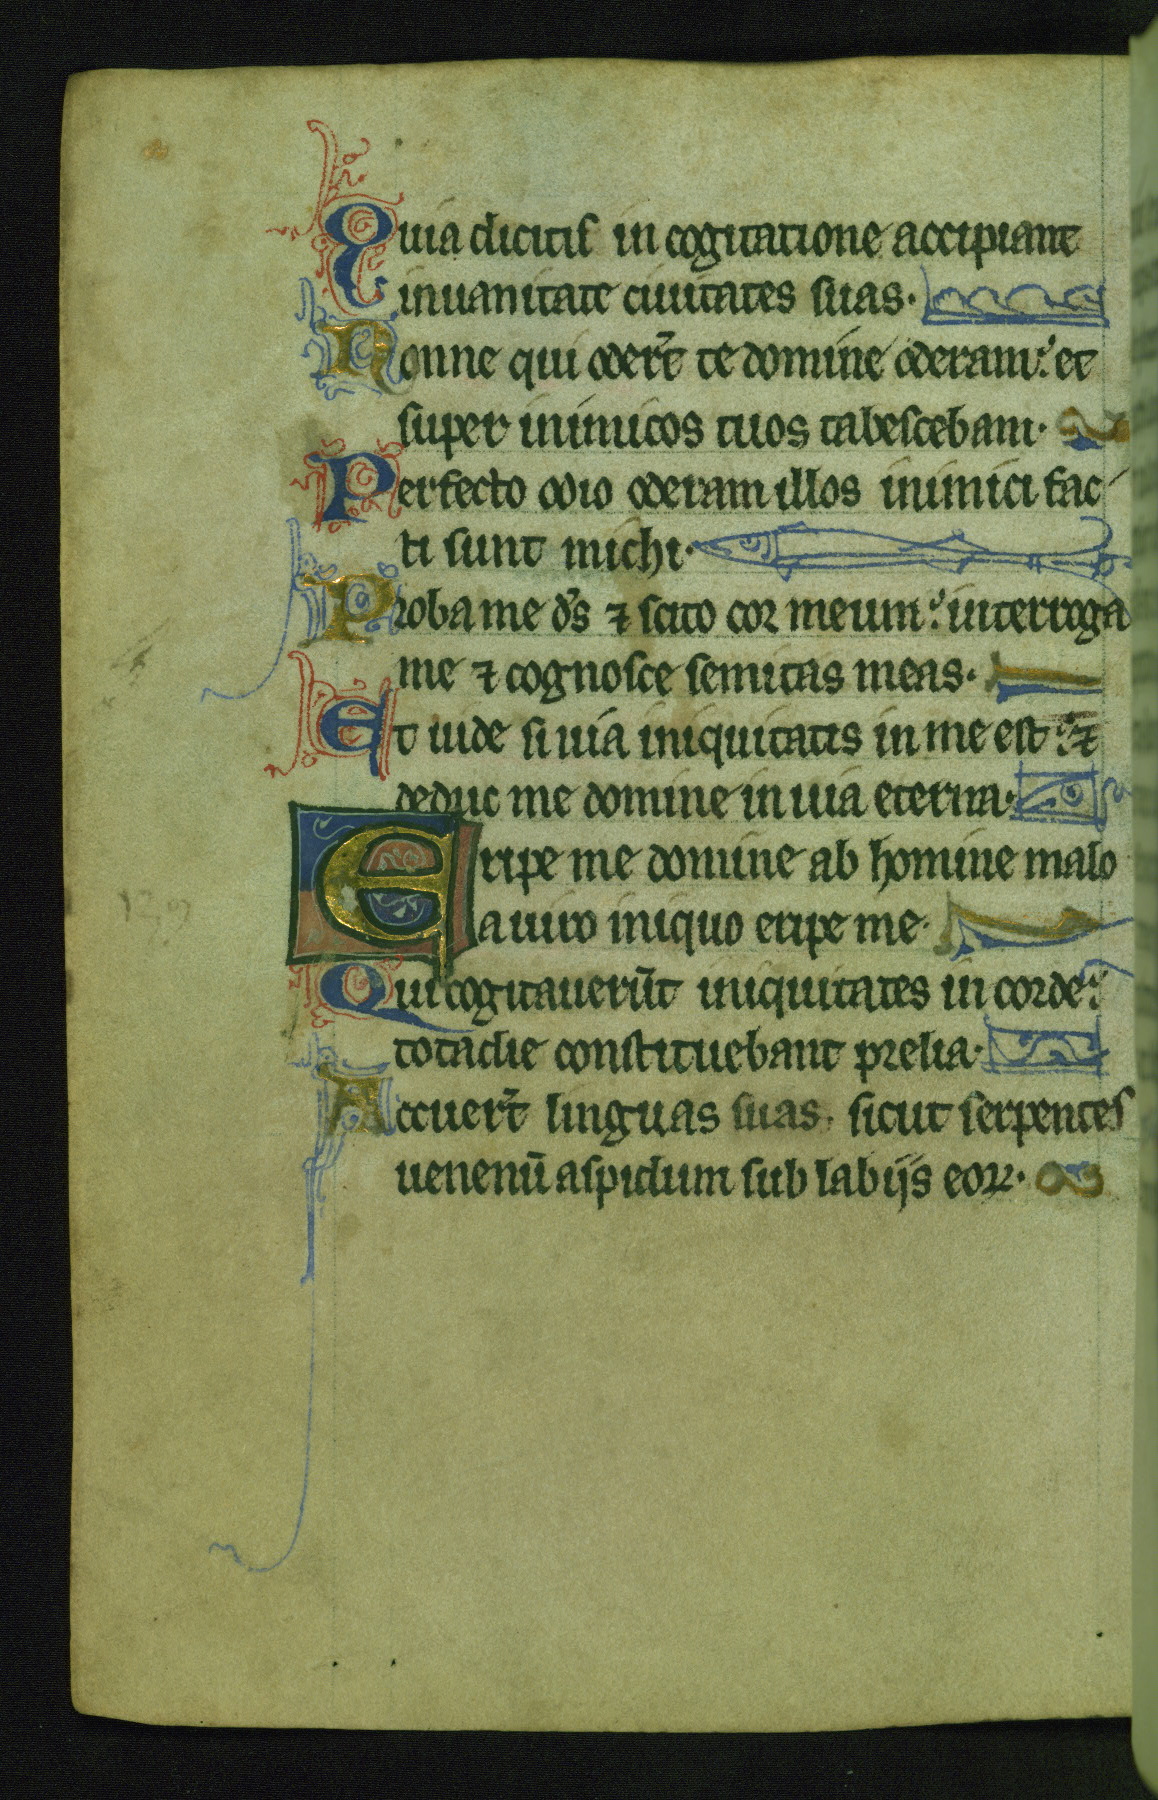 Quia dicitis in cogitatione accipiant
in uanitate ciuitates suas.
Nonne qui oder̄t te domine oderam: et
super inimicos tuos tabescebam.
Perfecto odio oderam illos inimici fac
ti sunt michi.
Proba me d̄s ⁊ scito cor meum: interroga
me ⁊ cognosce semitas meas.
Et uide si uia iniquitatis in me est: ⁊
deduc me domine in uia eterna.
Eripe me domine ab homine malo
a uiro iniquo eripe me.
Qui cogitauerūt iniquitates in corde:
tota die constituebant prelia.
Accuer̄t linguas suas. sicut serpentes
uenenū aspidum sub labijs eoꝝ.